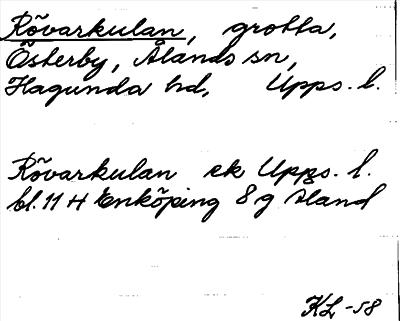 Rövarkulan, grotta,
Österby, Ålands sn,
Hagunda hd, Upps. l.
Rövarkulan ek Upps. l.
bl. 11 H Enköping 8 g Åland
KL -58